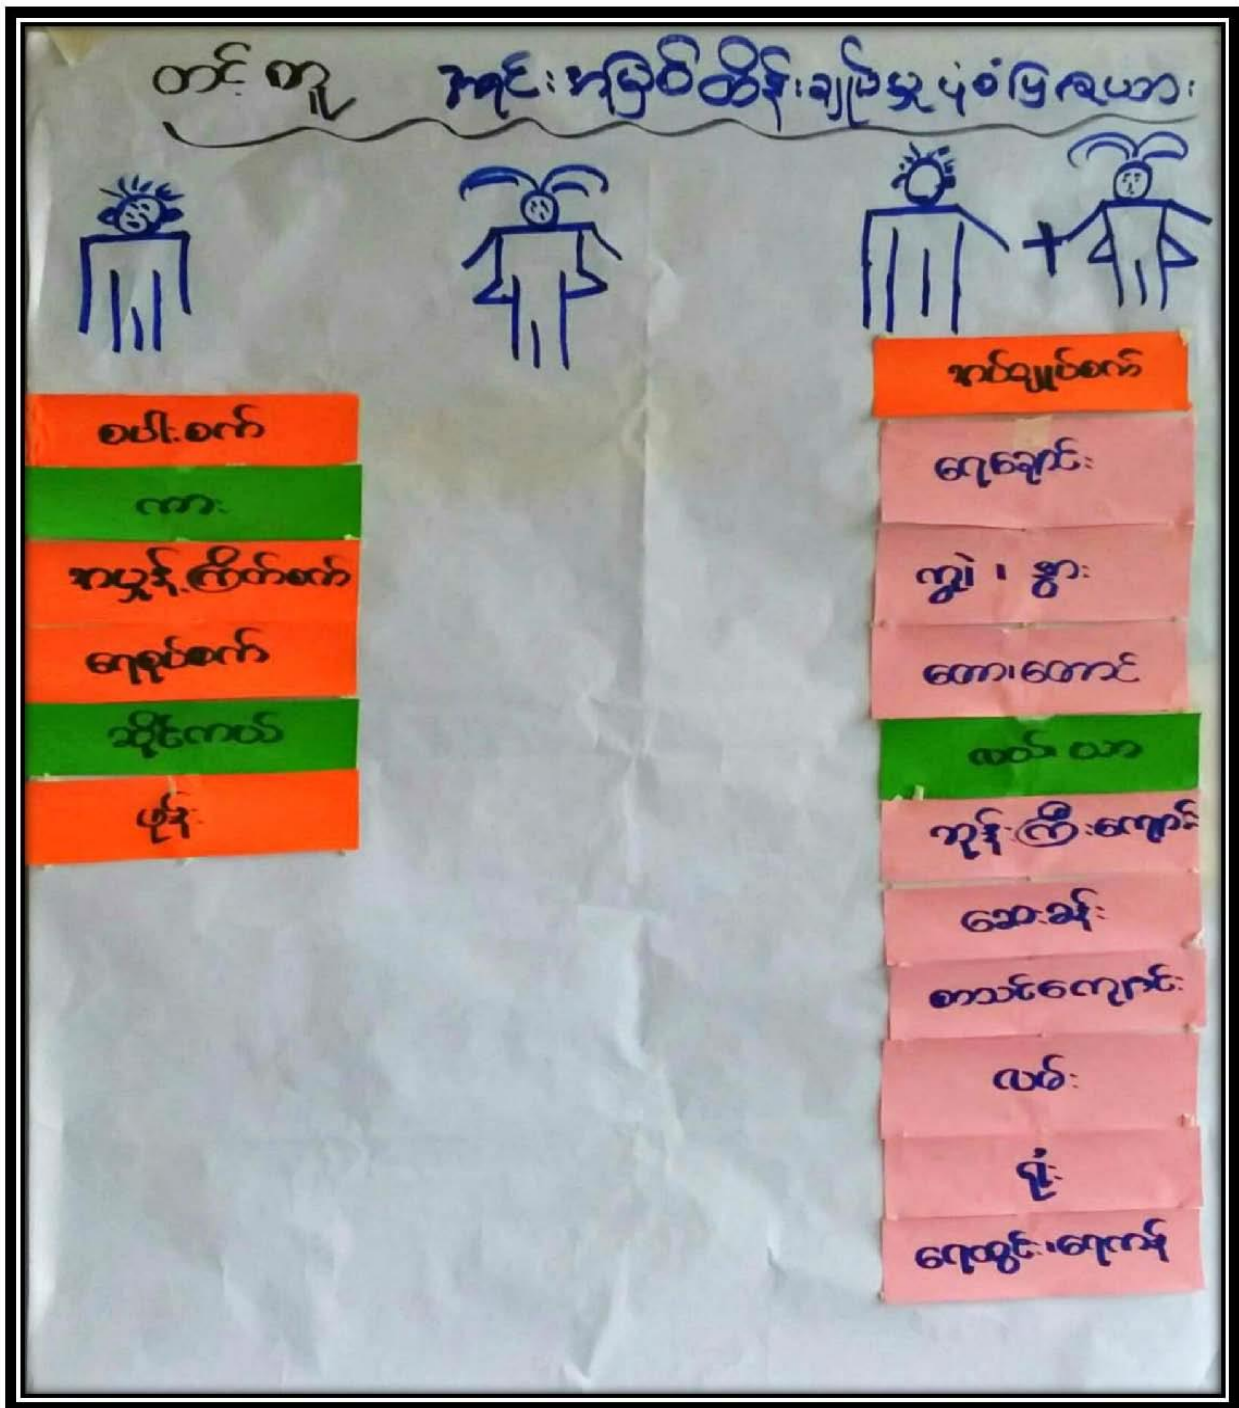 တင့်ကူ အရင်းအမြစ်ထိန်းချုပ်မှု ပုံစံပြဇယား
စပါးစက်
ကား
အမှုန့်ကြိတ်စက်
ရေစုပ်စက်
ဆိုင်ကယ်
ဖုန်း
အပ်ချုပ်စက်
ရေချောင်း
ကျွဲ ၊ နွား
တော၊တောင်
လယ်၊ယာ
ဘုန်းကြီးကျောင်း
ဆေးခန်း
စာသင်ကျောင်း
လမ်း
ရုံး
ရေတွင်း၊ရေကန်